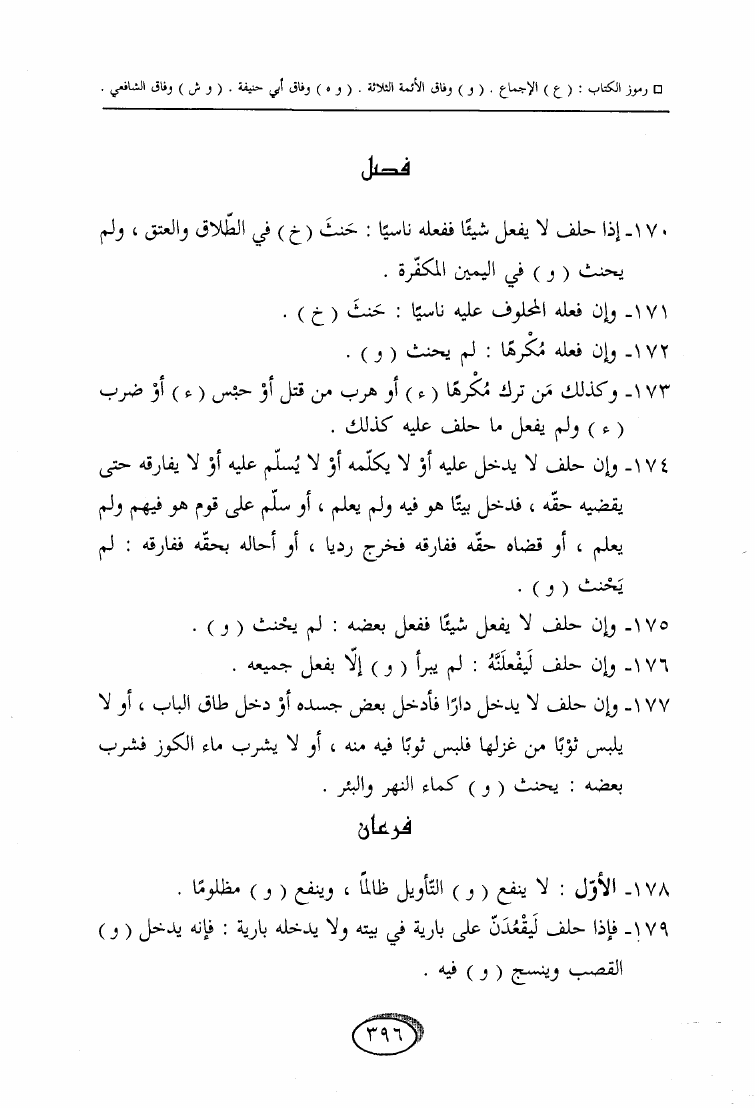 □ رموز الكتاب : ( ع ) الإجماع . ( و ) وفاق الأئمة الثلاثة . ( و ه ) وفاق أبي حنيفة . ( و ش ) وفاق الشافعي .
فصل
١٧٠- إذا حلف لا يفعل شيئًا ففعله ناسيًا : حَنثَ ( خ ) في الطّلاق والعتق ، ولم
يحنث ( و ) في اليمين المكفّرة .
١٧١- وإن فعله المحلوف عليه ناسيًا : حَنثَ ( خ ) .
١٧٢- وإن فعله مُكْرهًا : لم يحنث ( و ) .
١٧٣- وكذلك مَن ترك مُكْرهًا ( ء ) أو هرب من قتل أوْ حبْس ( ء ) أوْ ضرب
( ء ) ولم يفعل ما حلف عليه كذلك .
١٧٤- وإن حلف لا يدخل عليه أوْ لا يكلّمه أوْ لا يُسلّم عليه أوْ لا يفارقه حتى
يقضيه حقّه ، فدخل بيتًا هو فيه ولم يعلم ، أو سلّم على قوم هو فيهم ولم
يعلم ، أو قضاه حقّه ففارقه فخرج رديا ، أو أحاله بحقّه ففارقه : لم
يَحْنث ( و ) .
١٧٥- وإن حلف لا يفعل شيئًا ففعل بعضه : لم يحْنث ( و ) .
١٧٦- وإن حلف لَيفْعلَنَّهُ : لم يبرأ ( و ) إلّا بفعل جميعه .
١٧٧- وإن حلف لا يدخل دارًا فأدخل بعض جسده أوْ دخل طاق الباب ، أو لا
يلبس ثوْبًا من غزلها فلبس ثوبًا فيه منه ، أو لا يشرب ماء الكوز فشرب
بعضه : يحنث ( و ) كماء النهر والبئر .
فرعان
١٧٨- الأوّل : لا ينفع ( و ) التّأويل ظالمًا ، وينفع ( و ) مظلومًا .
١٧٩- فإذا حلف لَيقْعُدَنّ على بارية في بيته ولا يدخله بارية : فإنه يدخل ( و )
القصب وينسج ( و ) فيه .
٣٩٦